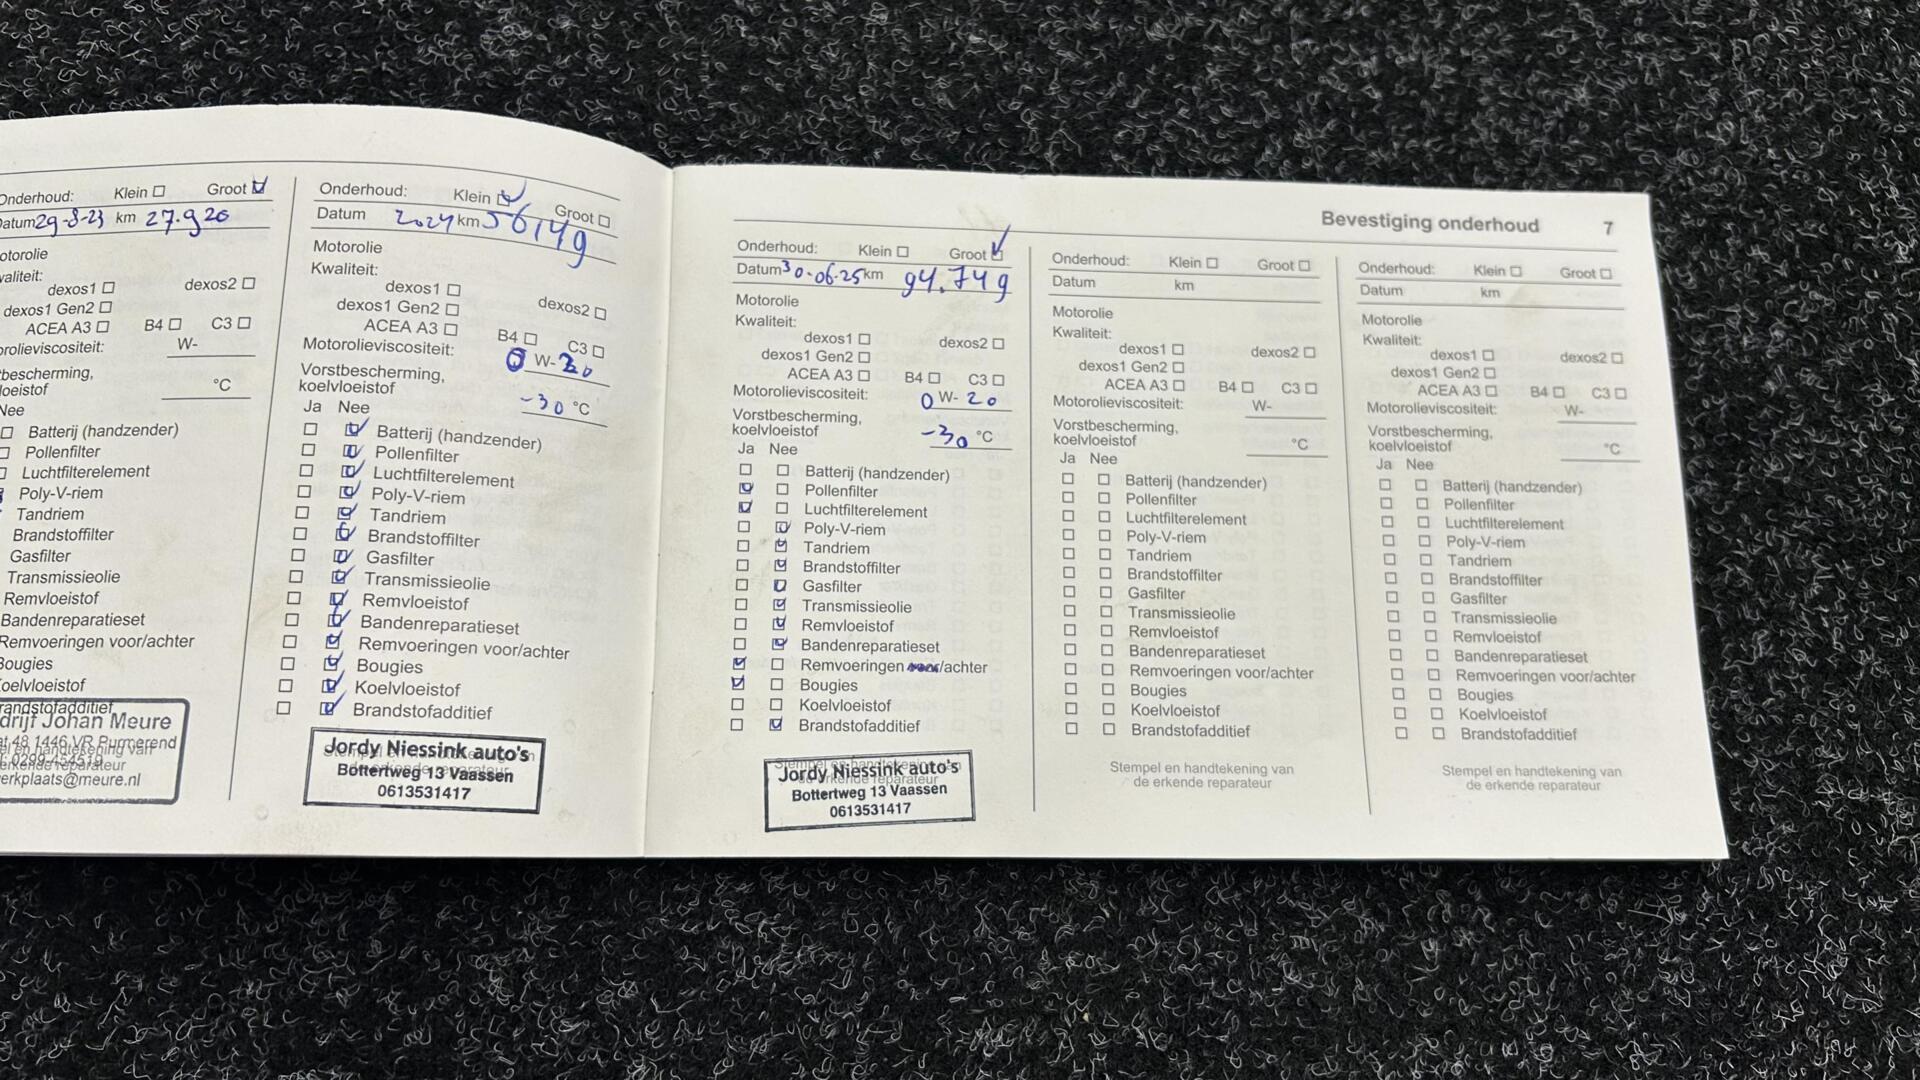 Onderhoud: Klein Groot
Datum 29-8-23 km 27.920
otorolie
waliteit:
dexos1 dexos2
dexos1 Gen2
ACEA A3 B4 C3
orolieviscositeit: W-
tbescherming,
loeistof °C
Nee
Batterij (handzender)
Pollenfilter
Luchtfilterelement
Poly-V-riem
Tandriem
Brandstoffilter
Gasfilter
Transmissieolie
Remvloeistof
Bandenreparatieset
Remvoeringen voor/achter
Bougies
Koelvloeistof
randstofadditief
drijf Johan Meure
at 48 1446 VR Purmerend
0299-454519
erkplaats@meure.nl
Onderhoud: Klein Groot
Datum 2024 km 56149
Motorolie
Kwaliteit:
dexos1 dexos2
dexos1 Gen2
ACEA A3 B4 C3
Motorolieviscositeit: 0 W-20
Vorstbescherming,
koelvloeistof -30 °C
Ja Nee
Batterij (handzender)
Pollenfilter
Luchtfilterelement
Poly-V-riem
Tandriem
Brandstoffilter
Gasfilter
Transmissieolie
Remvloeistof
Bandenreparatieset
Remvoeringen voor/achter
Bougies
Koelvloeistof
Brandstofadditief
Jordy Niessink auto's
Bottertweg 13 Vaassen
0613531417
Bevestiging onderhoud 7
Onderhoud: Klein Groot
Datum 30-06-25 km 94.749
Motorolie
Kwaliteit:
dexos1 dexos2
dexos1 Gen2
ACEA A3 B4 C3
Motorolieviscositeit: 0 W- 20
Vorstbescherming,
koelvloeistof -30 °C
Ja Nee
Batterij (handzender)
Pollenfilter
Luchtfilterelement
Poly-V-riem
Tandriem
Brandstoffilter
Gasfilter
Transmissieolie
Remvloeistof
Bandenreparatieset
Remvoeringen /achter
Bougies
Koelvloeistof
Brandstofadditief
Stempel en handtekening van
de erkende reparateur
Jordy Niessink auto's
Bottertweg 13 Vaassen
0613531417
Onderhoud: Klein Groot
Datum km
Motorolie
Kwaliteit:
dexos1 dexos2
dexos1 Gen2
ACEA A3 B4 C3
Motorolieviscositeit: W-
Vorstbescherming,
koelvloeistof °C
Ja Nee
Batterij (handzender)
Pollenfilter
Luchtfilterelement
Poly-V-riem
Tandriem
Brandstoffilter
Gasfilter
Transmissieolie
Remvloeistof
Bandenreparatieset
Remvoeringen voor/achter
Bougies
Koelvloeistof
Brandstofadditief
Stempel en handtekening van
de erkende reparateur
Onderhoud: Klein Groot
Datum km
Motorolie
Kwaliteit:
dexos1 dexos2
dexos1 Gen2
ACEA A3 B4 C3
Motorolieviscositeit: W-
Vorstbescherming,
koelvloeistof °C
Ja Nee
Batterij (handzender)
Pollenfilter
Luchtfilterelement
Poly-V-riem
Tandriem
Brandstoffilter
Gasfilter
Transmissieolie
Remvloeistof
Bandenreparatieset
Remvoeringen voor/achter
Bougies
Koelvloeistof
Brandstofadditief
Stempel en handtekening van
de erkende reparateur